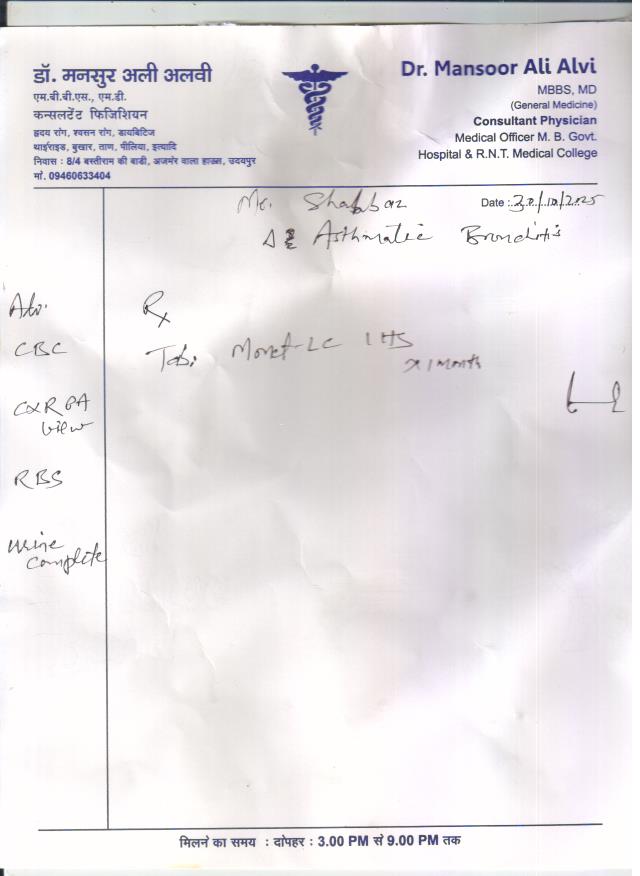 डॉ. मनसुर अली अलवी
एम.बी.बी.एस., एम.डी.
कन्सलटेंट फिजिशियन
हृदय रोग, श्वसन रोग, डायबिटिज
थाईराइड, बुखार, ताण, पीलिया, इत्यादि
निवास : 8/4 बस्तीराम की बाडी, अजमेर वाला हाउस, उदयपुर
मां. 09460633404
Dr. Mansoor Ali Alvi
MBBS, MD
(General Medicine)
Consultant Physician
Medical Officer M. B. Govt.
Hospital & R.N.T. Medical College
Mr. Shahbaz
Date : 30/10/2025
Asthmatic Bronchitis
Adv.
CBC
CXR PA
View
RBS
Urine
Complete
Rx
Tab. Monet-LC 1 HS
x 1 month
मिलने का समय : दोपहर : 3.00 PM से 9.00 PM तक